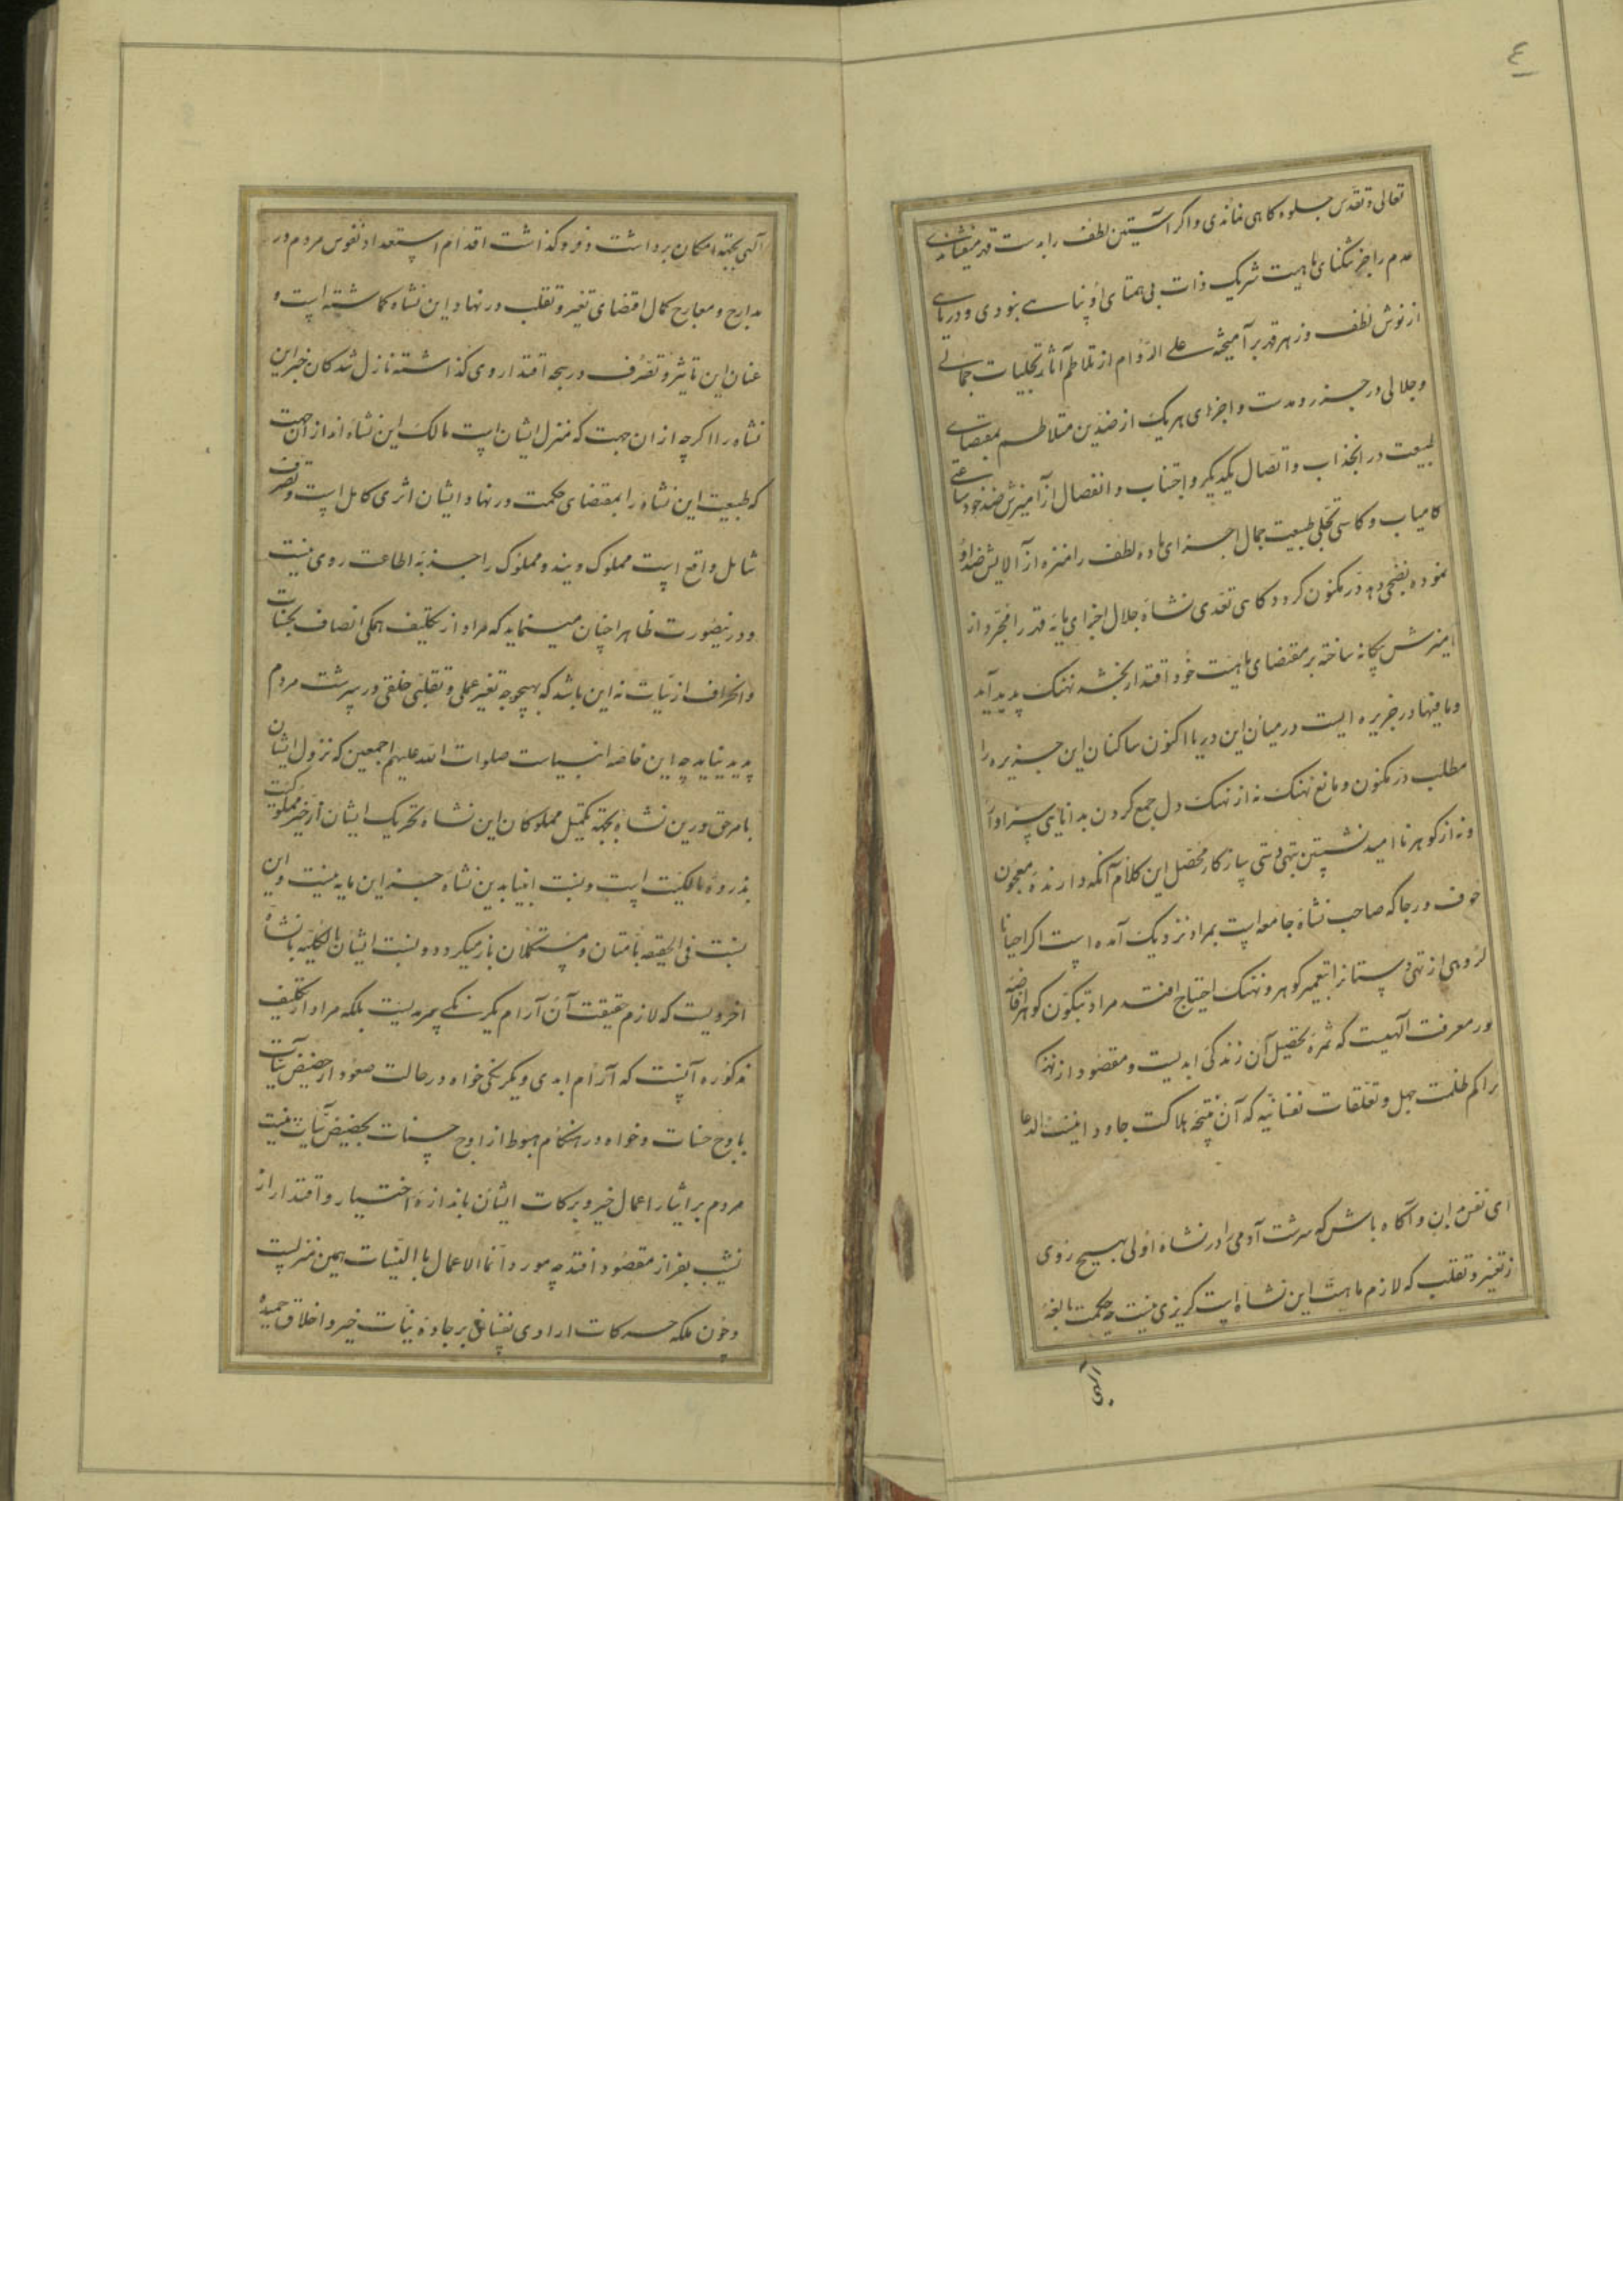 ٤
تعالی و تقدس جلوه کاهی نماندی و اکر آستین لطف را بدست قهر میفشاندی
عدم را جز تنکنای ماهیت شریک ذات بی همتای او پناهی بنودی و دریای
از نوش لطف و زهر قهر برآمیخته علی الدوام از تلاطم آثار تجلیات جمالی
و جلالی در جزر و مدست و اجزای هر یک از ضدین متلاطم بمقتضای
طبیعت در انجذاب و اتصال یکدیکر و اجتناب و انفصال از آمیزش ضد خود ساعتی
کامیاب و کاهی تجلی طبیعت جمال اجزای ماده لطف را منزه از آلایش
نموده نضجی دهد در مکنون کردد کاهی تعدی نشاه جلال اجزای مایه قهر را مجرد از
امیزش بیکانه ساخته بر مقتضای ماهیت خود اقتدار بخشد نهنک پدید آید
و مافیها در جزیره ایست در میان این دریا اکنون ساکنان این جزیره را
مطلب در مکنون و مانع نهنک نه از نهنک دل جمع کردن بدانایی سزاوار
و نه از کوهر نا امید نشستن بتهی دستی سازکار محصل این کلام آنکه دارنده معجون
خوف و رجا که صاحب نشاه جامعه است بمراد نزدیک آمده است اکر احیانا
کروهی از تهی دستانرا بتعبیر کوهر و نهنک احتیاج افتد مراد بتکون کوهر افاضه
نور معرفت آلهیست که ثمره تحصیل آن زندکی ابدیست و مقصود از نهنک
تراکم ظلمت جهل و تعلقات نفسانیه که آن نتیجه هلاکت جاودانیست الدعا
ای نفس بدان و آکاه باش که سرشت آدمی را در نشاه اولی بهیچ روی
از تغیر و تقلب که لازم ماهیت این نشاه است کریزی نیست چه حکمت بالغه
آلهی
آلهی بجهة امکان برداشت و فروکذاشت اقدام استعداد نفوس مردم در
مدارج و معارج کمال اقتضای تغیر و تقلب در نهاد این نشاه کماشته است و
عنان این تاثیر و تصرف در پنجه اقتدار وی کذاشته نازل شدکان خیر این
نشاه را اکرچه از ان جهت که منزل ایشان است مالک این نشاه اند از آن جهت
که طبیعت این نشاه را بمقتضای حکمت در نهاد ایشان اثری کامل است و تصرف
شامل واقع است مملوک ویند و مملوک را جز به اطاعت روی نیست
و درینصورت ظاهرا چنان مینماید که مراد از تکلیف همکی اتصاف بحسنات
و انحراف از سیات نه این باشد که بهیچوجه تغیر عملی و تقلبی خلقی در سرشت مردم
پدید نیاید چه این خاصه انبیاست صلوات الله علیهم اجمعین که نزول ایشان
بامر حق درین نشاه بجهة تکمیل مملوکان این نشاه و تحریک ایشان از حیز مملوکیت
بذروه مالکیت است و نسبت انبیا بدین نشاه جز این مایه نیست و این
نسبت فی الحقیقه بامتان و مستکملان باز میکردد و نسبت ایشان بالکلیه بانشاه
اخرویست که لازم حقیقت آن آرام یکرنکی سرمدیست بلکه مراد از تکلیف
مذکوره آنست که آرام ابدی و یکرنکی خواه در حالت صعود از حضیض سیآت
باوج حسنات و خواه در هنکام هبوط از اوج حسنات بحضیض سیآت نیت
مردم بر ایثار اعمال خیر و برکات ایشان باندازه اختیار و اقتدار از
نشیب بفراز مقصود افتد چه مورد انما الاعمال بالنیات همین منزلست
و چون ملکه حرکات ارادی نفسانی بر جاده نیات خیر و اخلاق حمیده